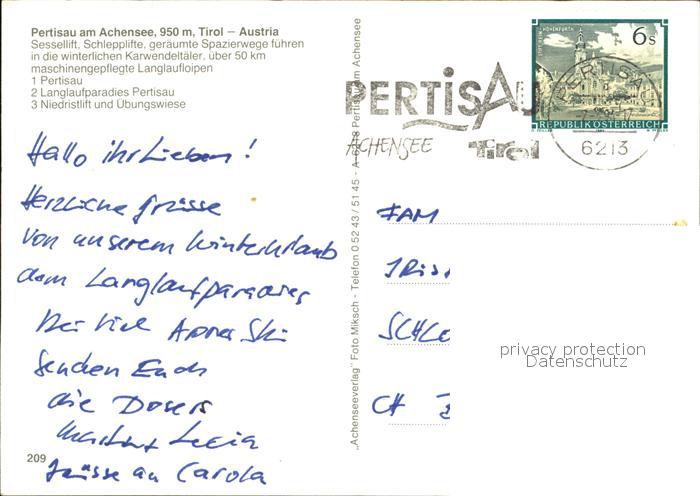 Pertisau am Achensee, 950 m, Tirol – Austria
Sessellift, Schlepplifte, geräumte Spazierwege führen
in die winterlichen Karwendeltäler, über 50 km
maschinengepflegte Langlaufloipen
1 Pertisau
2 Langlaufparadies Pertisau
3 Niedristlift und Übungswiese
Hallo ihr Lieben!
Herzliche Grüsse
von unserem Winterurlaub
dem Langlaufparadies
Bei viel Apres Ski
Senden Euch
die Dosers
Lucia
Grüsse an Carola
209
„Achenseeverlag" Foto Miksch - Telefon 0 52 43 / 51 45 - Pertisau am Achensee
PERTISAU
ACHENSEE
Tirol
PERTISAU
6213
6 S
STIFT REIN-HOHENFURTH
REPUBLIK ÖSTERREICH
FAM
SCHLO
CH
privacy protection
Datenschutz